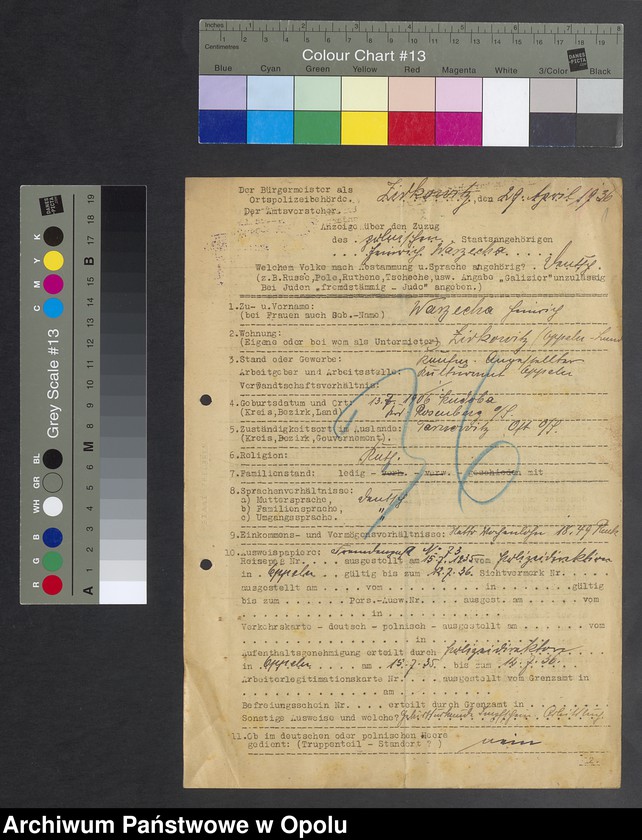 Inches 1 2 3 4 5 6 7 8
Centimetres 1 2 3 4 5 6 7 8 9 10 11 12 13 14 15 16 17 18 19
Colour Chart #13
Blue Cyan Green Yellow Red Magenta White 3/Color Black
DANES PICTA
Grey Scale #13
R G B WH GR BL C M Y K
A 1 2 3 4 5 6 M 8 9 10 11 12 13 14 15 B 17 18 19
Der Bürgermeister als
Ortspolizeibehörde.
Der Amtsvorsteher.
Zirkowitz, den 29. April 1936
Anzeige über den Zuzug
des polnischen Staatsangehörigen
Heinrich Warzecha
Welchem Volke nach Abstammung u.Sprache angehörig? Deutsch.
(z.B.Russe,Pole,Ruthene,Tscheche,usw. Angabe "Galizier"unzulässig
Bei Juden "fremdstämmig - Jude" angeben.)
1.Zu- u.Vorname: Warzecha Heinrich
(bei Frauen auch Geb.-Name)
2.Wohnung:
(Eigene oder bei wem als Untermieter) Zirkowitz Oppeln-Land
3.Stand oder Gewerbe: Angestellter
Arbeitgeber und Arbeitsstelle: Oppeln
Verwandtschaftsverhältnis:
4.Geburtsdatum und Ort: 13.7.1906
(Kreis,Bezirk,Land) Rosenberg O/S.
5.Zuständigkeitsort im Auslande: Tarnowitz Ost O/S.
(Kreis,Bezirk,Gouvernement).
36
6.Religion: Kath.
7.Familienstand: ledig - verh. - verw. - geschieden mit
8.Sprachenverhältnisse:
a) Muttersprache, deutsch
b) Familiensprache, "
c) Umgangssprache. "
9.Einkommens- und Vermögensverhältnisse: Netto Wochenlohn 18.79
10.Ausweispapiere: Fremdenpaß No. 73
Reisepaß Nr. ausgestellt am 15.7.1935 vom Polizeidirektion
in Oppeln gültig bis zum 36. Sichtvermerk Nr.
ausgestellt am vom in gültig
bis zum Pers.-Ausw.Nr. ausgest. am vom
in
Verkehrskarte - deutsch - polnisch - ausgestellt am vom
in
Aufenthaltsgenehmigung erteilt durch Polizeidirektion
in Oppeln am 15.7.35. bis zum 14.7.36.
Arbeiterlegitimationskarte Nr. ausgestellt vom Grenzamt in
am
Befreiungsschein Nr. erteilt durch Grenzamt in
Sonstige Ausweise und welche?
11.Ob im deutschen oder polnischen Heere
gedient: (Truppenteil - Standort ? ) nein
Archiwum Państwowe w Opolu